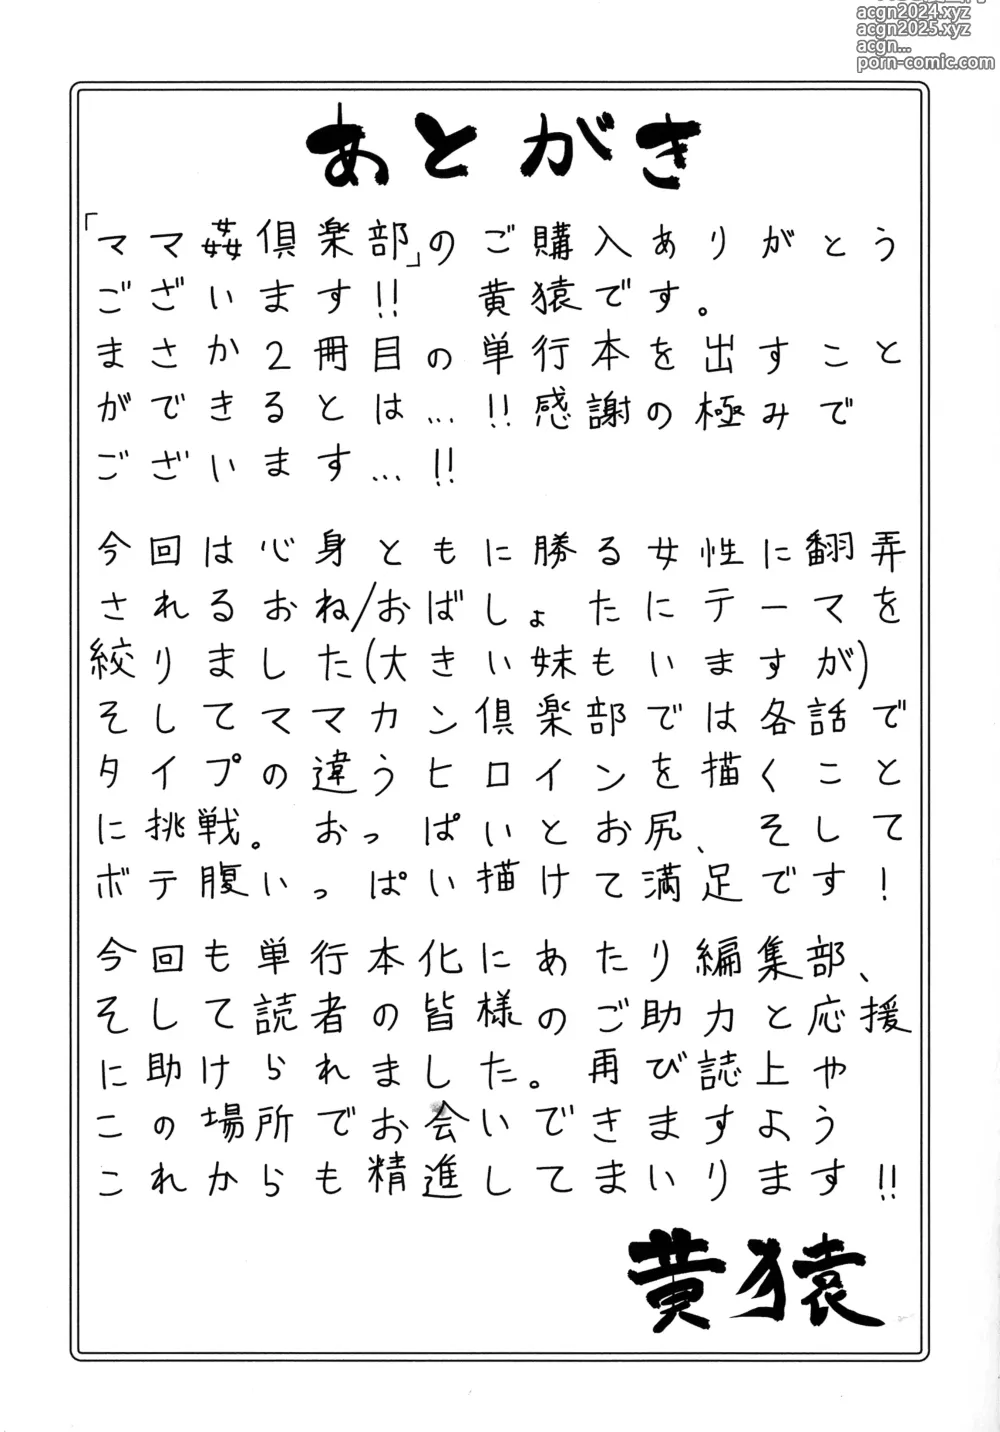 acgn2024.xyz
acgn2025.xyz
acgn...
porn-comic.com
あとがき
「ママ姦倶楽部」のご購入ありがとう
ございます!! 黄猿です。
まさか2冊目の単行本を出すこと
ができるとは…!!感謝の極みで
ございます…!!
今回は心身ともに勝る女性に翻弄
されるおね/おばしょたにテーマを
絞りました(大きい妹もいますが)
そしてママカン倶楽部では各話で
タイプの違うヒロインを描くこと
に挑戦。おっぱいとお尻、そして
ボテ腹いっぱい描けて満足です!
今回も単行本化にあたり編集部、
そして読者の皆様のご助力と応援
に助けられました。再び誌上や
この場所でお会いできますよう
これからも精進してまいります!!
黄猿